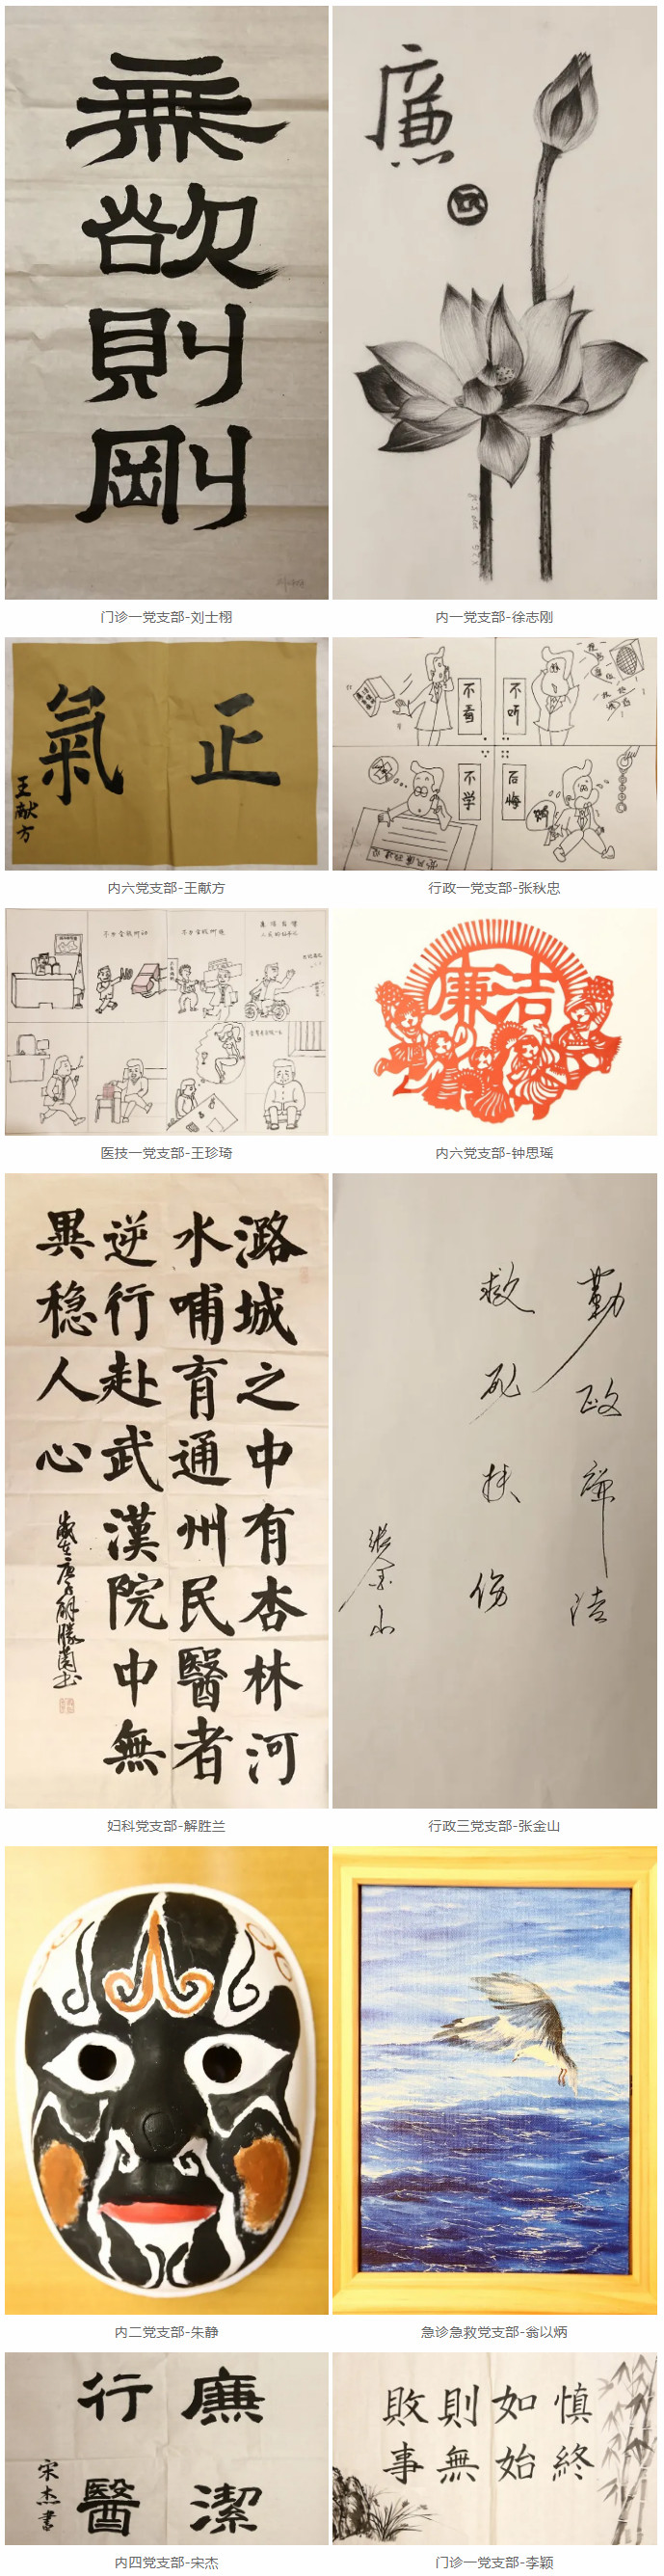 無欲則剛
门诊一党支部-刘士栩
廉
内一党支部-徐志刚
正氣
王献方
内六党支部-王献方
不看
不听
不学
后悔
行政一党支部-张秋忠
不为金钱所动
医技一党支部-王珍琦
廉洁
内六党支部-钟思瑶
潞城之中有杏林河
水哺育通州民醫者
逆行赴武漢院中無
異稳人心
歲在庚子解勝蘭书
妇科党支部-解胜兰
勤政廉洁
救死扶伤
张金山
行政三党支部-张金山
内二党支部-朱静
急诊急救党支部-翁以炳
廉潔
行醫
宋杰書
内四党支部-宋杰
慎終
如始
則無
敗事
门诊一党支部-李颖